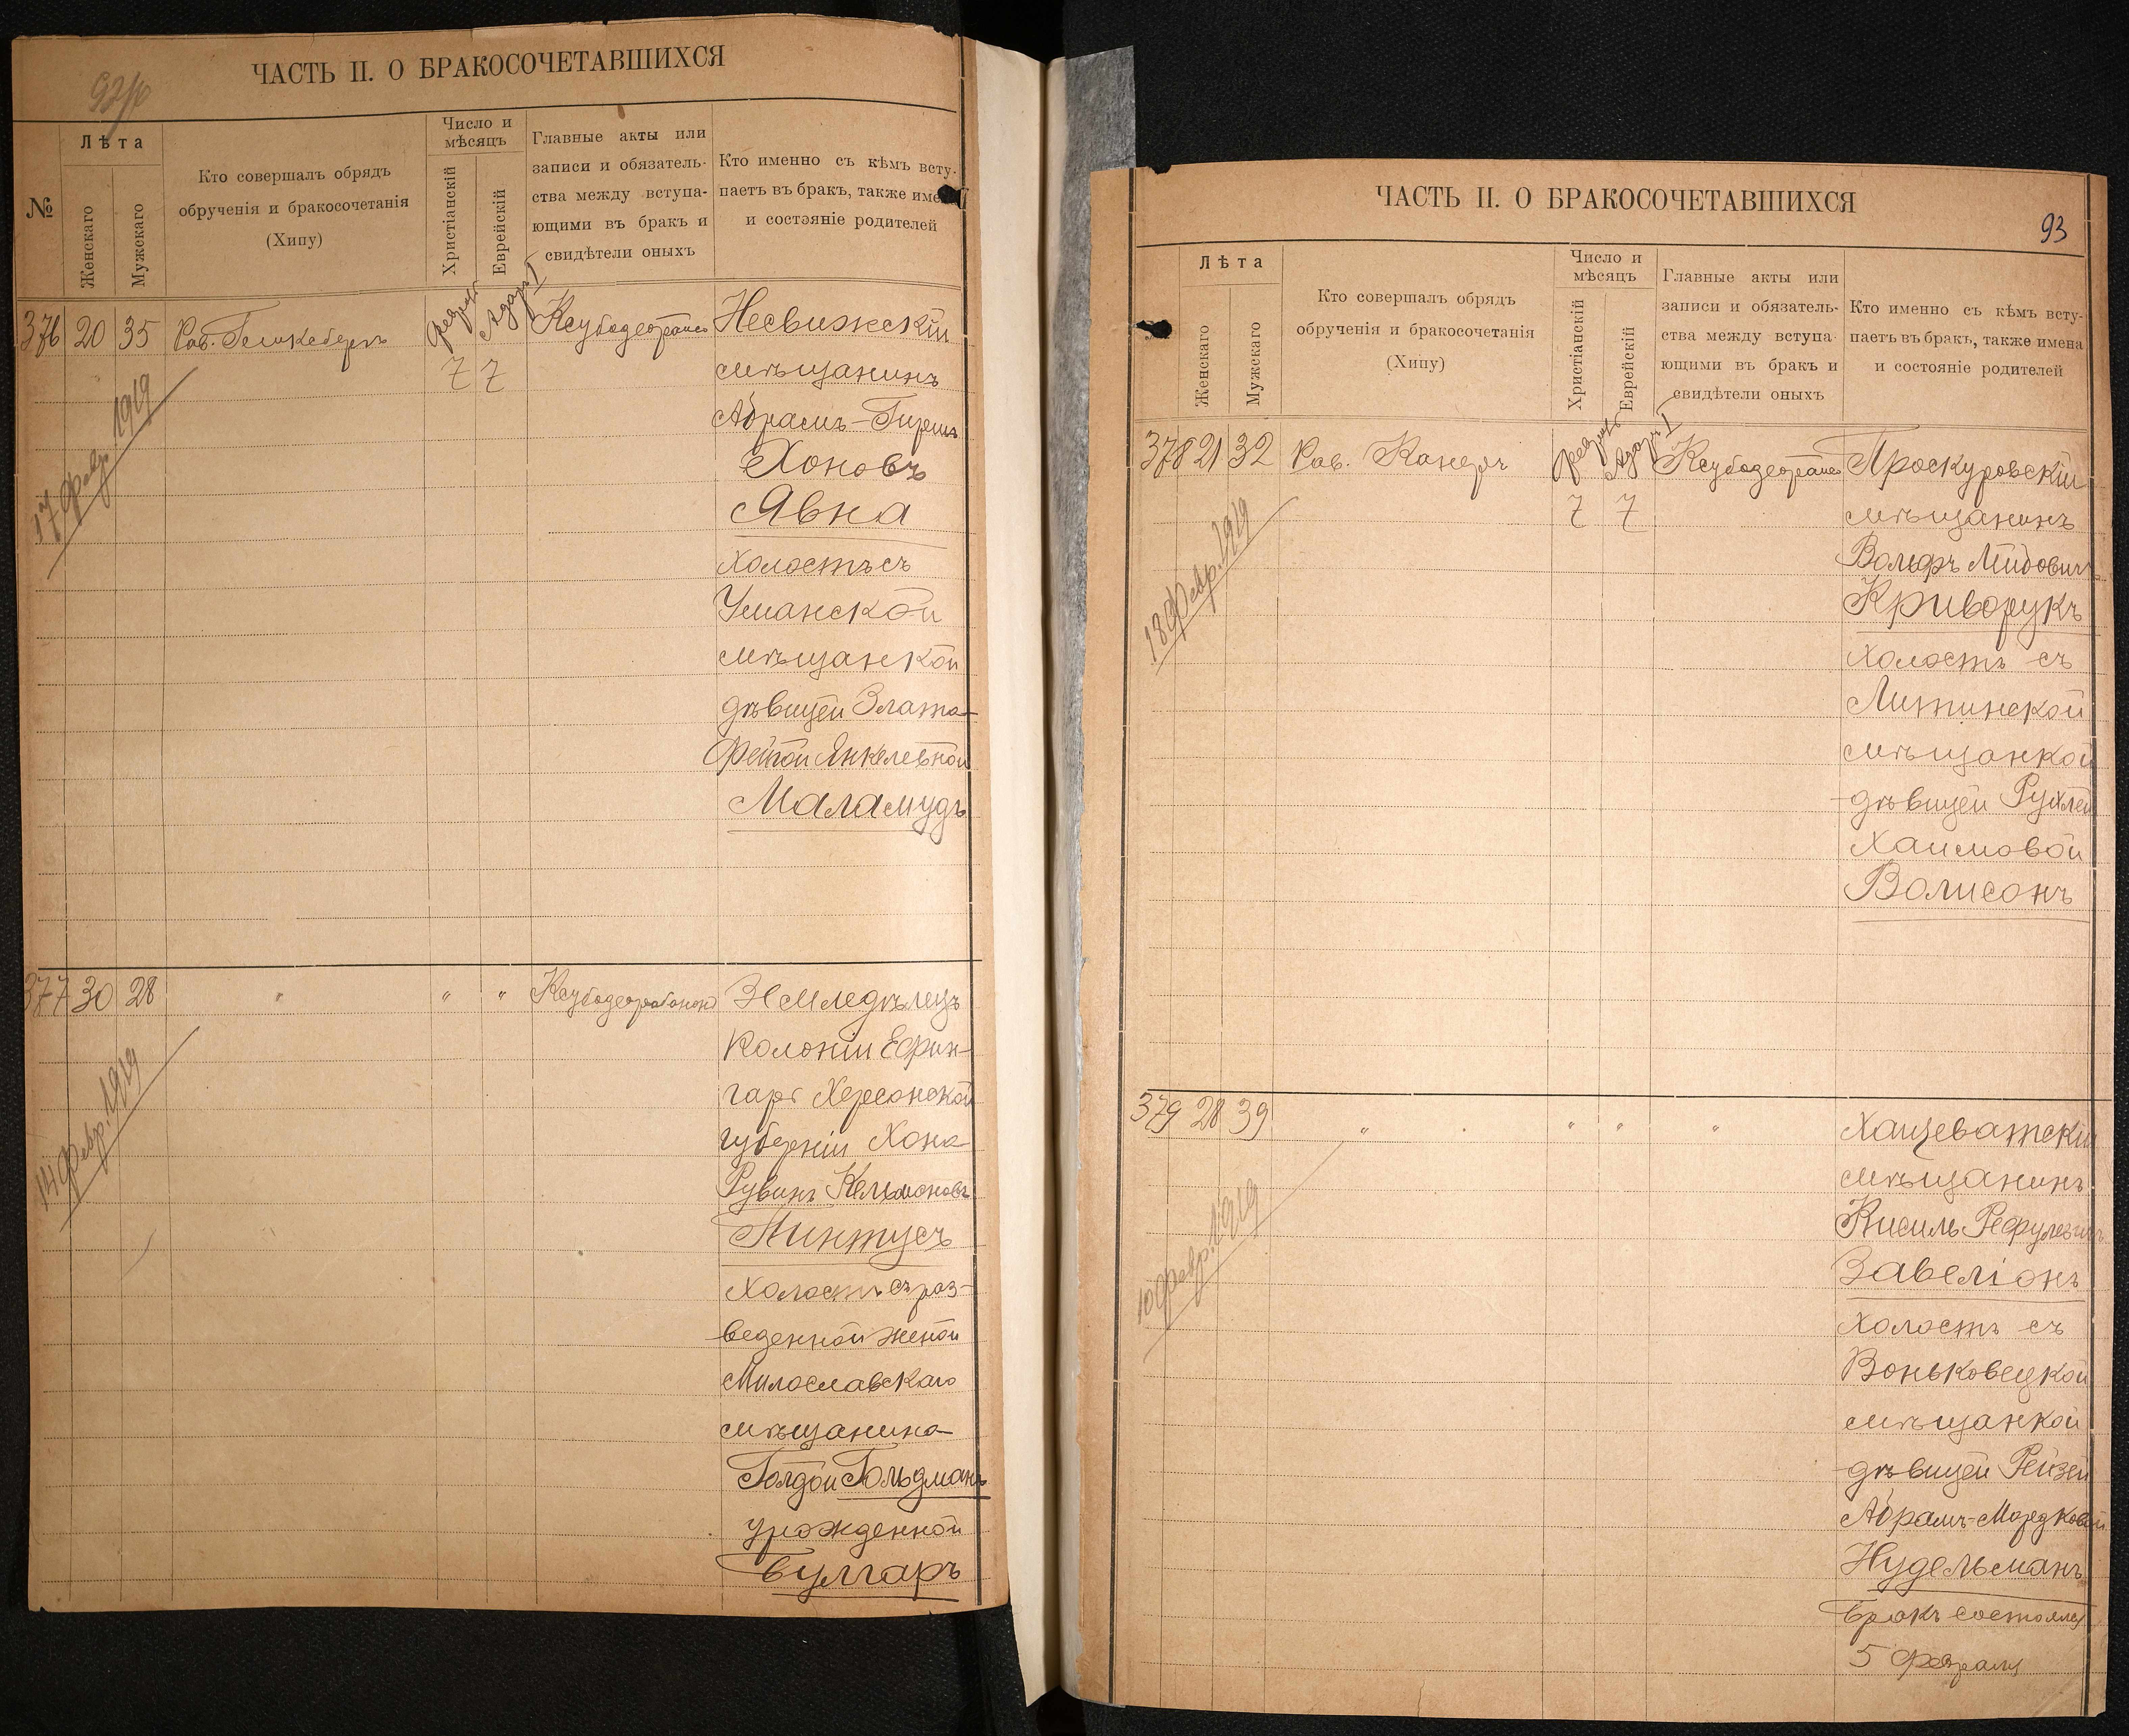 ЧАСТЬ II. О БРАКОСОЧЕТАВШИХСЯ
№
Лѣта
Женскаго
Мужскаго
Кто совершалъ обрядъ
обрученія и бракосочетанія
(Хипу)
Число и
мѣсяцъ
Христіанскій
Еврейскій
Главные акты или
записи и обязатель-
ства между вступа-
ющими въ бракъ и
свидѣтели оныхъ
Кто именно съ кѣмъ всту-
паетъ въ бракъ, также имена
и состояніе родителей
376 20 35 Рав.
7 7
Несвижскій
мѣщанинъ
Абрамъ-Гиршъ
Хоновъ
Явна
холостъ съ
Уманской
мѣщанкой
дѣвицей Злата-
Фейгой Янкелевной
Маламудъ
17 Февр. 1919
377 30 28 " " "
Земледѣлецъ
Колоніи Ефин-
гаръ Херсонской
губерніи Хона-
Рувинъ Кельмоновъ
Пинтусъ
Холостъ съ раз-
веденной женой
Милославскаго
мѣщанина
Голдой Гольдманъ
урожденной
Булгаръ
14 Февр. 1919
ЧАСТЬ II. О БРАКОСОЧЕТАВШИХСЯ
93
Лѣта
Женскаго
Мужскаго
Кто совершалъ обрядъ
обрученія и бракосочетанія
(Хипу)
Число и
мѣсяцъ
Христіанскій
Еврейскій
Главные акты или
записи и обязатель-
ства между вступа-
ющими въ бракъ и
свидѣтели оныхъ
Кто именно съ кѣмъ всту-
паетъ въ бракъ, также имена
и состояніе родителей
378 21 32 Рав. Канеръ
7 7
Проскуровскій
мѣщанинъ
Вольфъ Лейбовичъ
Криворукъ
холостъ съ
Литинской
мѣщанкой
дѣвицей Рухлей
Хаимовой
Волисонъ
18 Февр. 1919
379 28 39 " " " "
Хащеватскій
мѣщанинъ
Кисиль Рефулевичъ
Завеліонъ
холостъ съ
Воньковецкой
мѣщанкой
дѣвицей Рейзей
Абрамъ-Мордковой
Нудельманъ
Бракъ состоялся
5 Февраля
10 Февр. 1919